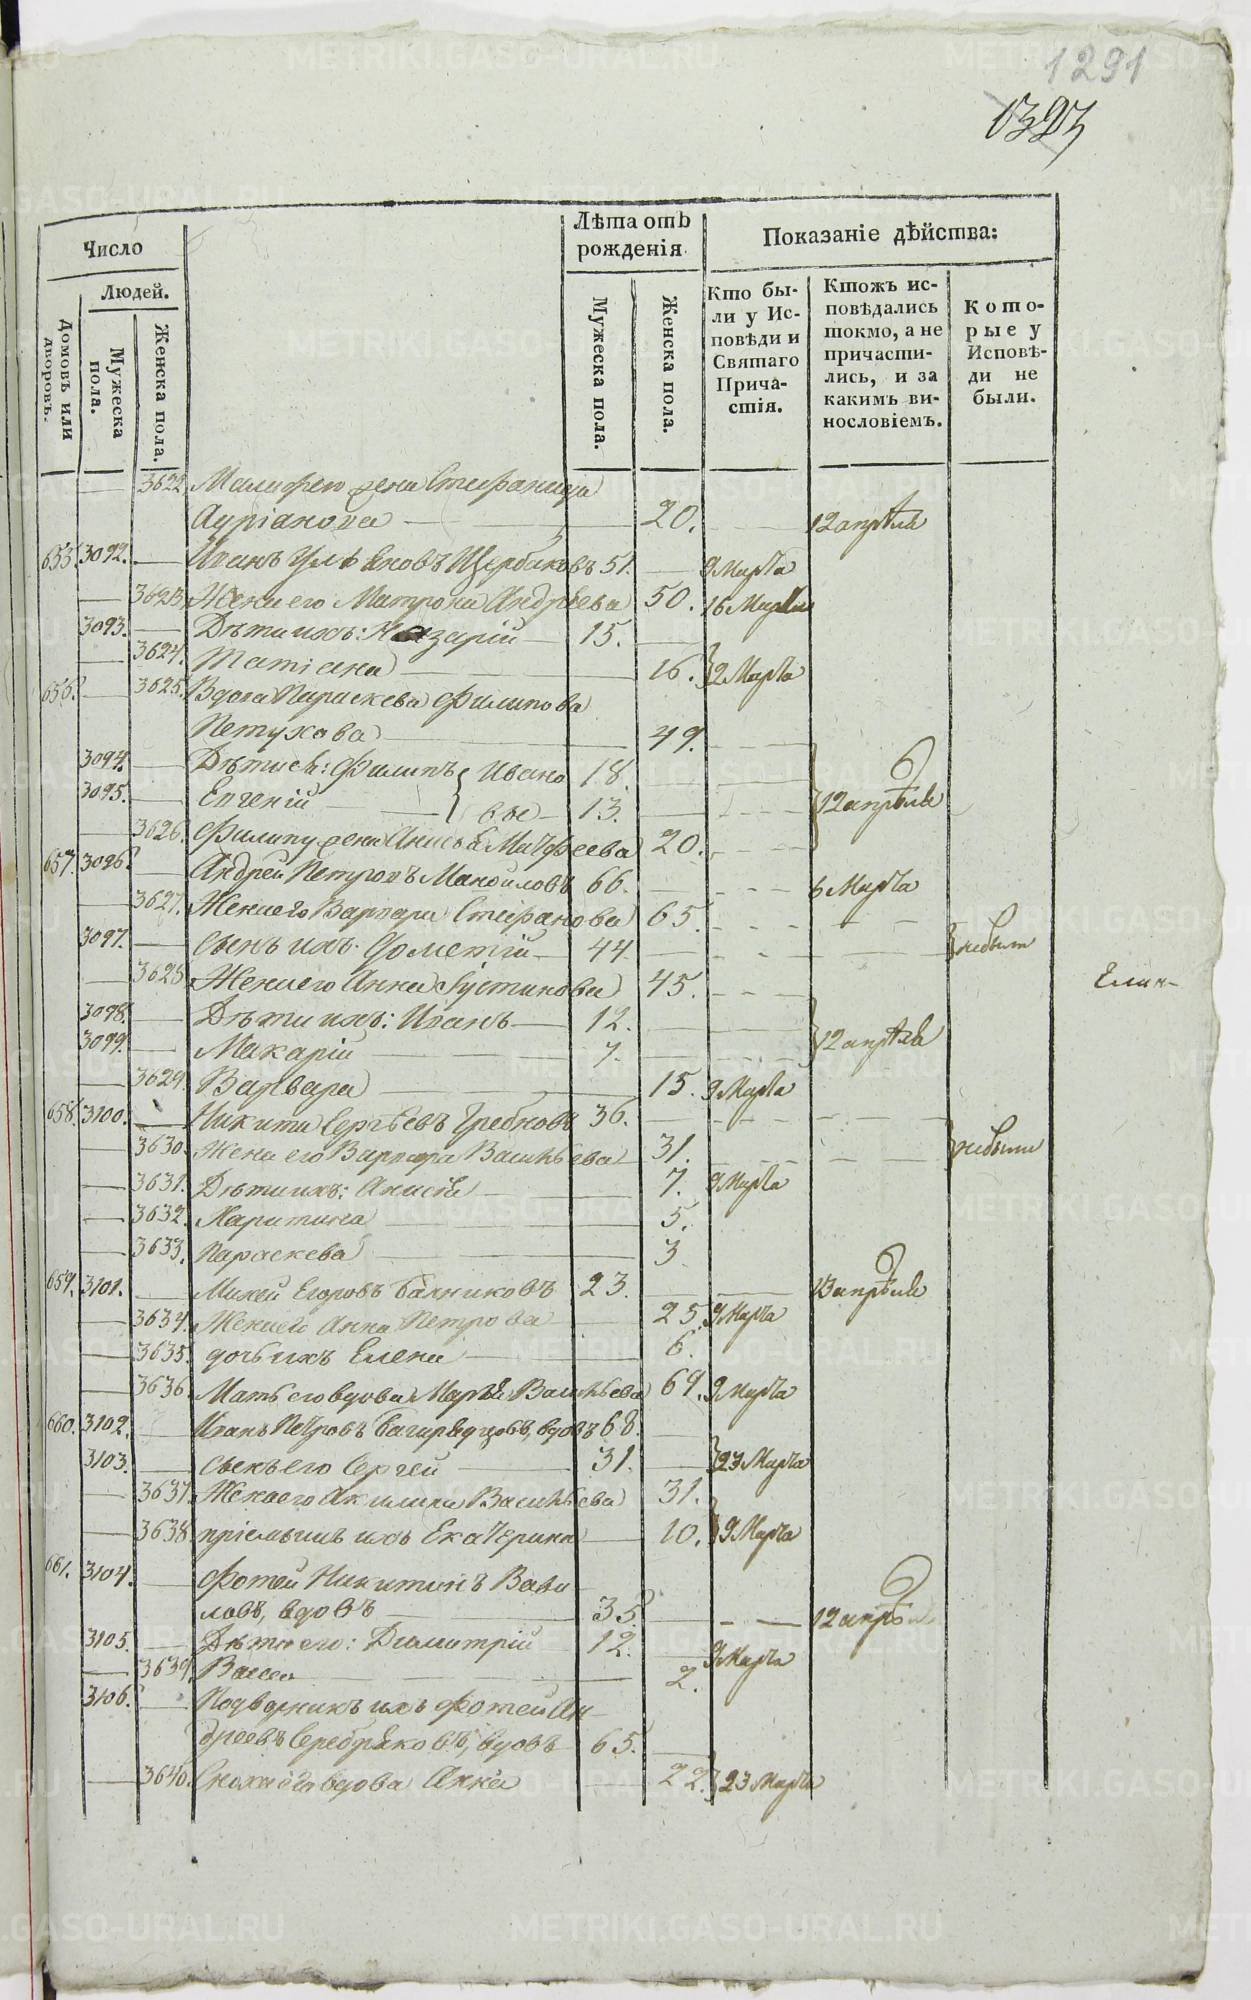 1291
1323
Число
Лѣта отъ рожденія
Показаніе дѣйства:
Людей.
Домовъ или дворовъ.
Мужеска пола.
Женска пола.
Мужеска пола.
Женска пола.
Кто были у Исповѣди и Святаго Причастія.
Ктожъ исповѣдались токмо, а не причастились, и за какимъ винословіемъ.
Которые у Исповѣди не были.
3622. жена Стефанида
Адріанова 20. 12 апрѣля
655. 3092. Иванъ Щербаковъ 51. 9 Марта
3623. Жена его Матрона Андреева 50. 16 Марта
3093. Дѣти ихъ: Назарій 15.
3624. Татіана 16. 9 Марта
656. 3625. Вдова Параскева Филипова
Петухова 49.
3094. Дѣти ея: Филипъ Ивано 18.
3095. Евгеній вы 13. 12 апрѣля
3626. Филипу жена Анисья Матфеева 20.
657. 3096. Андрей Петровъ Маноиловъ 66. 6 Марта
3627. Жена его Варвара Стефанова 65.
3097. сынъ ихъ Дометій 44. небыли
3628 Жена его Анна Іустинова 45.
Елин-
3098. Дѣти ихъ: Иванъ 12.
3099. Макарій 7. 12 апрѣля
3629. Варвара 15. 9 Марта
658. 3100. Никита Сергѣевъ Гребновъ 36.
3630. Жена его Варвара Васильева 31. небыли
3631. Дѣти ихъ: Анисья 7. 9 Марта
3632. Харитина 5.
3633. Параскева 3
659. 3101. Михей Егоровъ Банниковъ 23. 13 апрѣля
3634. Жена его Анна Петрова 25. 9 Марта
3635. дочь ихъ Елена 6.
3636. Мать его вдова Марья Васильева 69. 9 Марта
660. 3102. Иванъ Петровъ вдовъ 68.
3103. сынъ его Сергей 31. 23 Марта
3637. Жена его Акилина Васильева 31.
3638. пріемышъ ихъ Екатерина 10. 9 Марта
661. 3104. Фотей Никитинъ Вави-
ловъ, вдовъ 35. 12 апрѣля
3105. Дѣти его: Димитрій 12. 9 Марта
3639. Васса 2.
3106. Подворникъ ихъ Фотей Ан-
дреевъ Серебряковъ, вдовъ 65.
3640. Сноха его вдова Анна 22. 23 Марта
METRIKI.GASO-URAL.RU